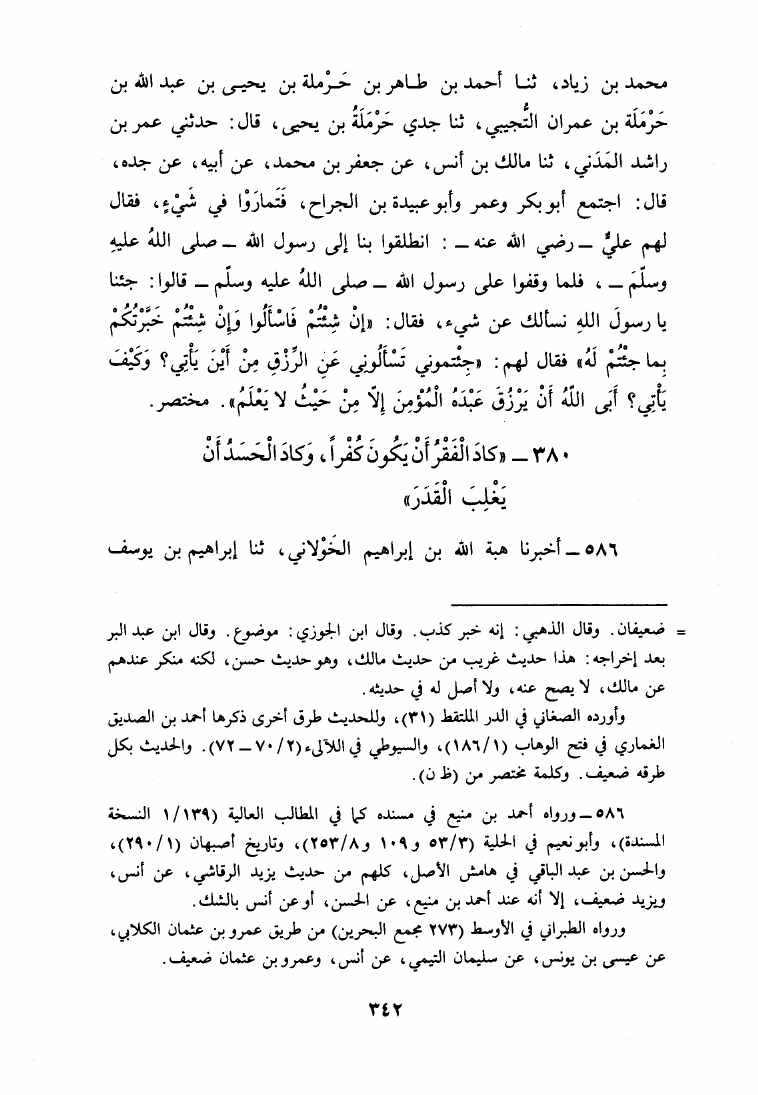 محمد بن زياد، ثنا أحمد بن طاهر بن حَرْملة بن يحيى بن عبد الله بن
حَرْمَلَة بن عمران التُّجيبي، ثنا جدي حَرْمَلَةُ بن يحيى، قال: حدثني عمر بن
راشد المَدَني، ثنا مالك بن أنس، عن جعفر بن محمد، عن أبيه، عن جده،
قال: اجتمع أبو بكر وعمر وأبو عبيدة بن الجراح، فَتَمارَوْا في شَيْءٍ، فقال
لهم عليٌّ ــ رضي الله عنه ــ : انطلقوا بنا إلى رسول الله ــ صلى اللهُ عليهِ
وسلَّمَ ــ ، فلما وقفوا على رسول الله ــ صلى اللهُ عليه وسلَّم ــ قالوا: جئنا
يا رسولَ اللهِ نسألك عن شيء، فقال: «إنْ شِئْتُمْ فَاسْأَلُوا وَإنْ شِئْتُمْ خَبَّرْتُكُمْ
بِما جِئْتُمْ لَهُ» فقال لهم: «جِئْتموني تَسْأَلُوني عَنِ الرِّزْقِ مِنْ أَيْنَ يَأتِي؟ وَكَيْفَ
يَأتِي؟ أَبَى اللّهُ أَنْ يَرْزُقَ عَبْدَهُ الْمُؤمِنَ إلَّا مِنْ حَيْثُ لا يَعْلَمُ». مختصر.
٣٨٠ ــ «كادَ الْفَقْرُ أَنْ يَكُونَ كُفْراً، وَكادَ الْحَسَدُ أَنْ
يَغْلِبَ الْقَدَرَ»
٥٨٦ ــ أخبرنا هبة الله بن إبراهيم الخَوْلاني، ثنا إبراهيم بن يوسف
= ضعيفان. وقال الذهبي: إنه خبر كذب. وقال ابن الجوزي: موضوع. وقال ابن عبد البر
بعد إخراجه: هذا حديث غريب من حديث مالك، وهو حديث حسن، لكنه منكر عندهم
عن مالك، لا يصح عنه، ولا أصل له في حديثه.
وأورده الصغاني في الدر الملتقط (٣١)، وللحديث طرق أخرى ذكرها أحمد بن الصديق
الغماري في فتح الوهاب (١/١٨٦)، والسيوطي في اللآلىء (٢/٧٠ ــ ٧٢). والحديث بكل
طرقه ضعيف. وكلمة مختصر من (ظ ن).
٥٨٦ ــ ورواه أحمد بن منيع في مسنده كما في المطالب العالية (١/١٣٩ النسخة
المسندة)، وأبو نعيم في الحلية (٣/٥٣ و ١٠٩ و ٨/٢٥٣)، وتاريخ أصبهان (١/٢٩٠)،
والحسن بن عبد الباقي في هامش الأصل، كلهم من حديث يزيد الرقاشي، عن أنس،
ويزيد ضعيف، إلا أنه عند أحمد بن منيع، عن الحسن، أو عن أنس بالشك.
ورواه الطبراني في الأوسط (٢٧٣ مجمع البحرين) من طريق عمرو بن عثمان الكلابي،
عن عيسى بن يونس، عن سليمان التيمي، عن أنس، وعمرو بن عثمان ضعيف.
٣٤٢